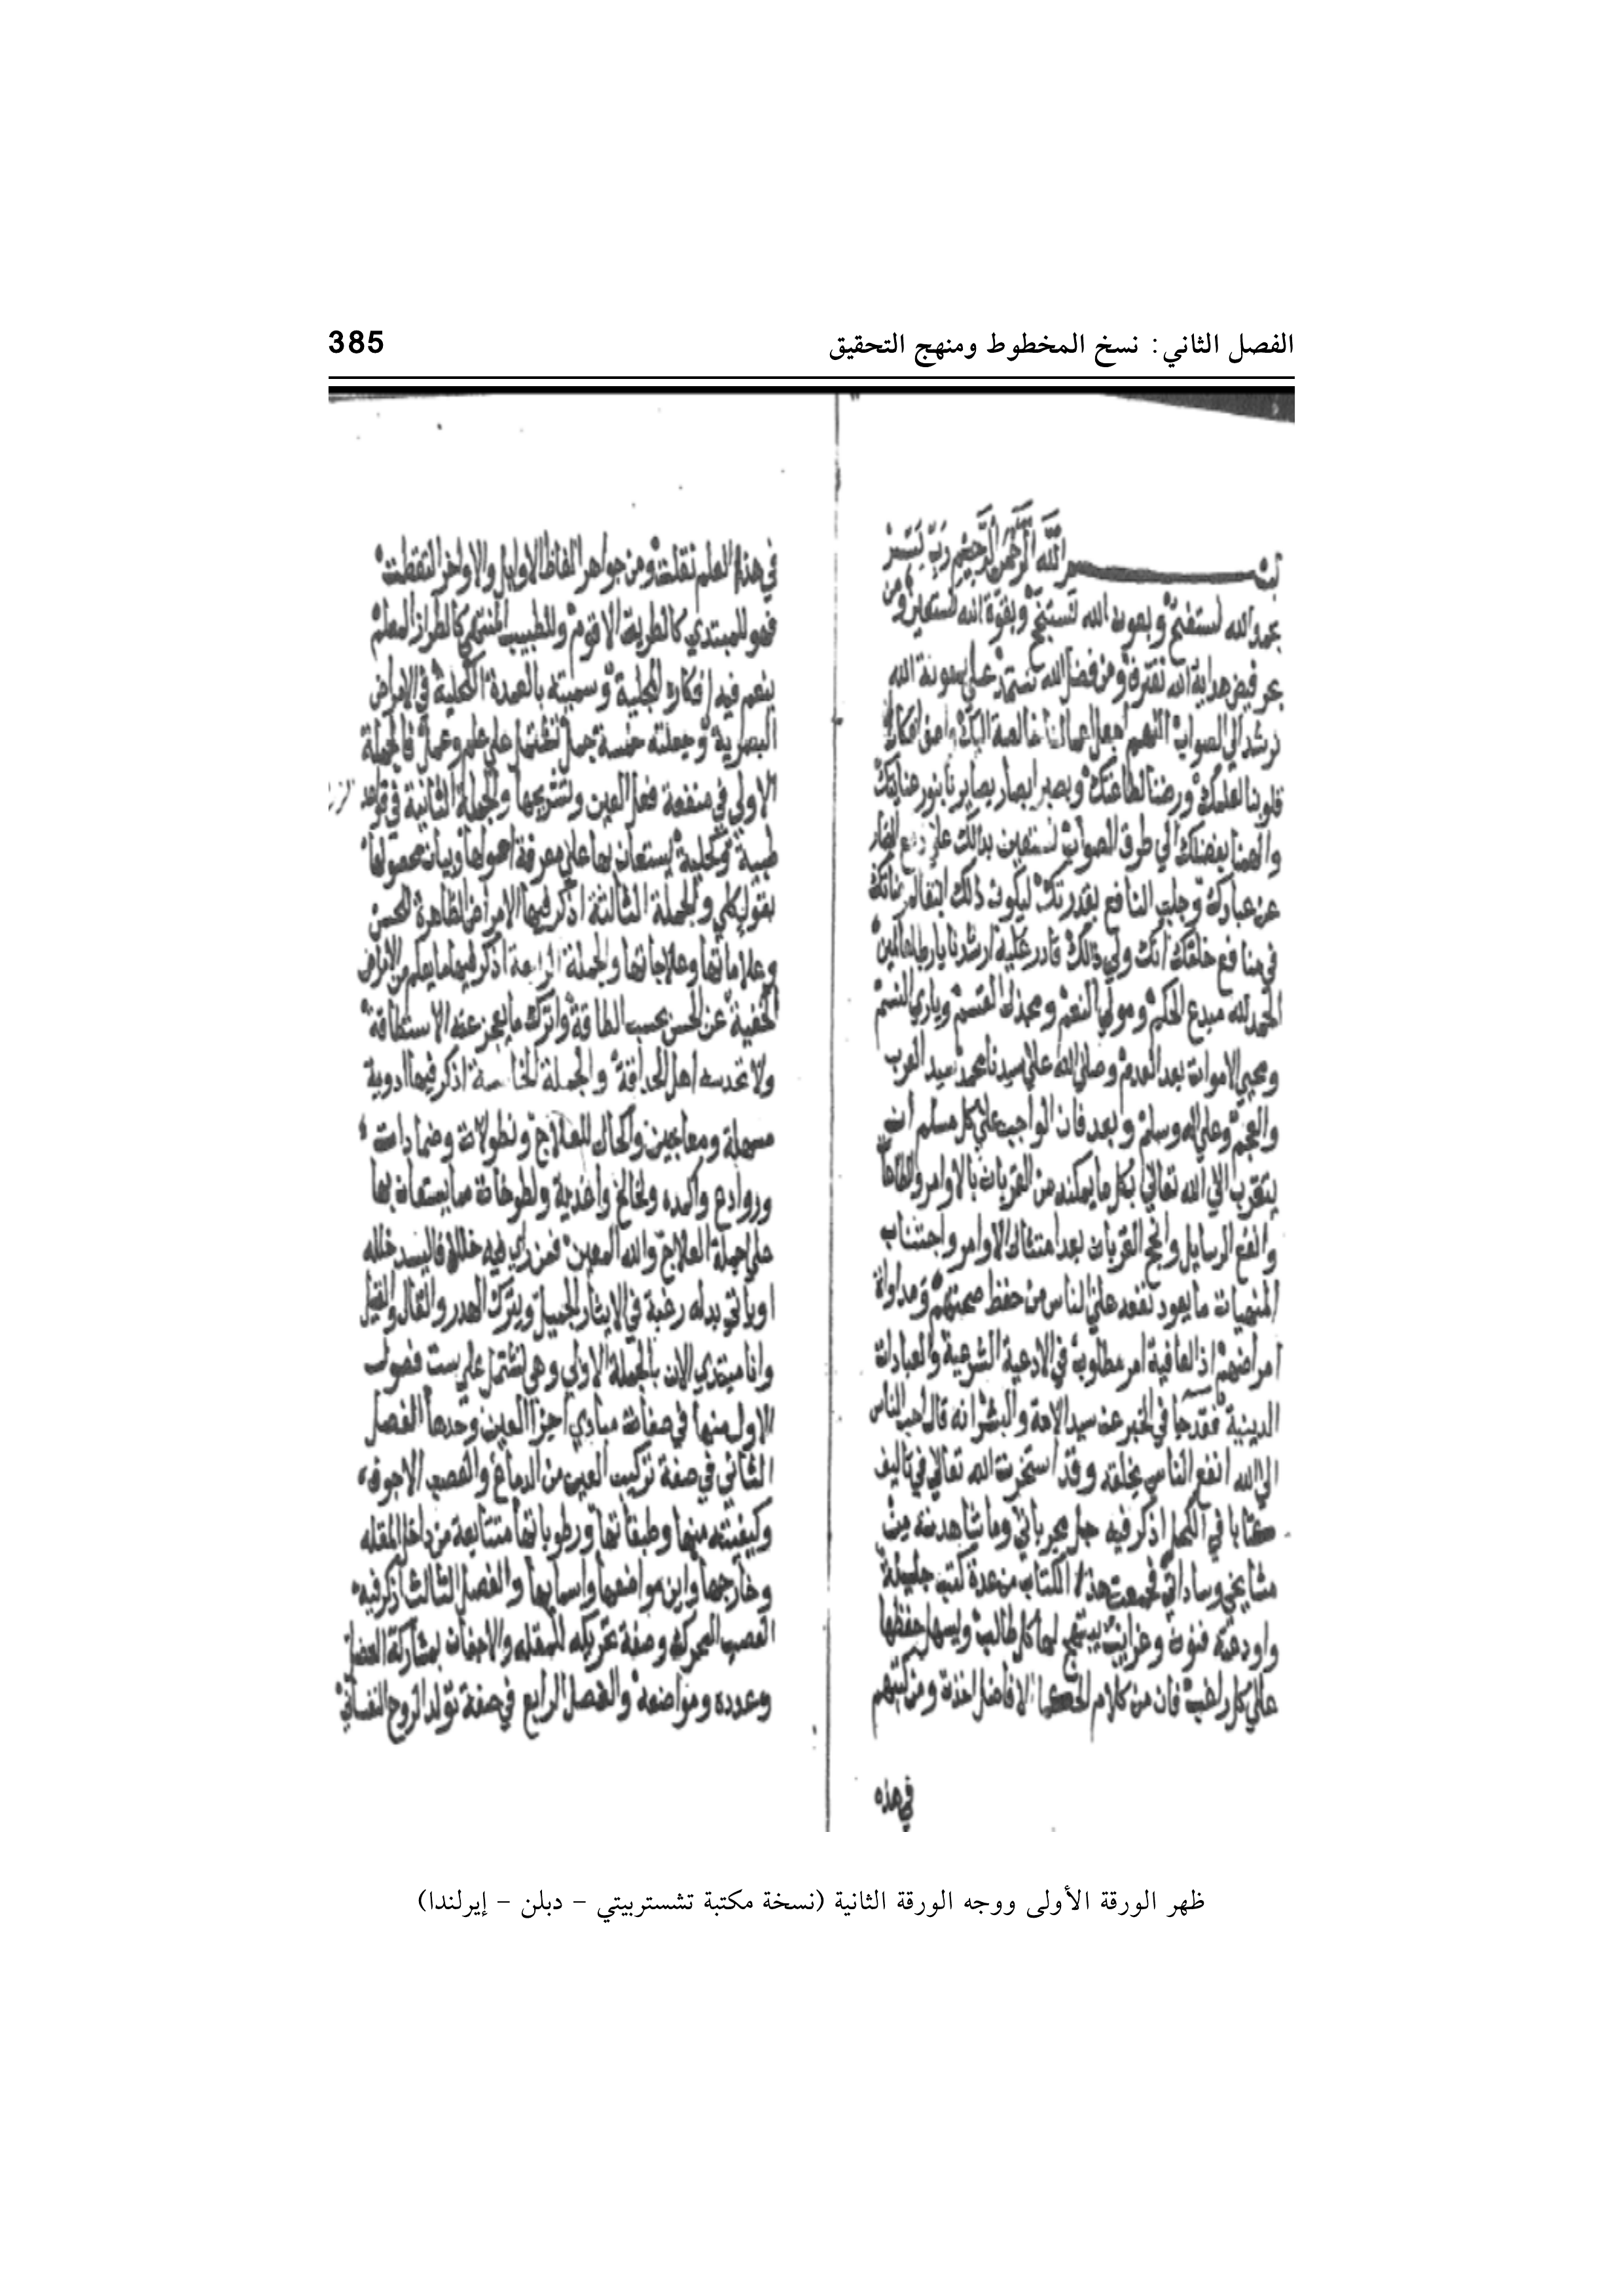 الفصل الثاني: نسخ المخطوط ومنهج التحقيق
385
بسم الله الرحمن الرحيم رب يسر
بحمد الله نستفتح وبعون الله نستنجح وبقوة الله نستعين ومن
بحر فيض هداية الله نغترف ومن فضل الله نستمد على معونة الله
نرشد الي الصواب اللهم اجعل اعمالنا خالصة اليك
قلوبنا لعلمك ورضنا لطاعتك وبصر ابصار بصايرنا بنور عنايتك
والهمنا بفضلك الي طرق الصواب نستعين بذلك علي
عن عبادك وجلب النافع بقدرتك ليكون ذلك
في منافع خلقك انك ولي ذلك قادر عليه ارشدنا يارب العالمين
الحمد لله مبدع الحكم ومولي النعم وباري النسم
ومحيي الاموات بعد العدم وصلي الله علي سيدنا محمد سيد العرب
والعجم وعلي اله وسلم وبعد فان الواجب علي كل مسلم ان
يتقرب الي الله تعالي بكل ما يمكنه من القربات بالاوامر
وانفع الرسايل وانجح القربات بعد امتثال الاوامر واجتناب
المنهيات ما يعود نفعه علي الناس من حفظ صحتهم ومداواة
امراضهم اذ العافية امر مطلوب في الادعية الشرعية والعبادات
الدينية فقد جا في الخبر عن سيد الامة والبشر انه قال احب الناس
الي الله انفع الناس بخلقه وقد استخرت الله تعالي في تاليف
كتابا في الكحل اذكر فيه جل مجرباتي وما شاهدته من
مشايخي وساداتي فجمعت هذا الكتاب من عدة كتب جليلة
واودعته فنون وغرايب يبتهج لها كل طالب ويسهل حفظها
علي كل راغب فان من كلام الحكما الافاضل اخذت ومن كتبهم
في هذه
في هذا العلم نقلت ومن جواهر الفاظ الاوايل والاواخر التقطت
فهو للمبتدي كالطريق الاقوم وللطبيب المنتهي كالطراز المعلم
ينعم فيه افكاره الجلية وسميته بالعمدة الكحلية في الامراض
البصرية وجعلته خمسة جمل تشتمل علي علم وعمل فالجملة
الاولي في منفعة فعل العين وتشريحها والجملة الثانية في قواعد
طبية وكحلية يستعان بها علي معرفة اصولها وبيان محصولها
بقول كلي والجملة الثالثة اذكر فيها الامراض الظاهرة للحس
وعلاماتها وعلاجاتها والجملة الرابعة اذكر فيها ما يعلم من الامراض
الخفية عن الحس بحسب الطاقة واترك ما يعجز عنه الاستطاقة
ولا تحدسه اهل الحذاقة والجملة الخامسة اذكر فيها ادوية
مسهلة ومعاجين واكحال للعلاج ونطولات وضمادات
وروادع واكمده ولخالخ واغذية ولطوخات مما يستعان بها
علي جملة العلاج والله المعين فمن راي فيه خللا فاليسد خلله
او ياتي بدله رغبة في الايثار الجميل ويترك الهدر والقال والقيل
وانا مبتدي الان بالجملة الاولي وهي تشتمل علي ست فصول
الاول منها في صفات مبادي اجزا العين وحدها الفصل
الثاني في صفة تركيب العين من الدماغ والعصب الاجوف
وكيفيته منها وطبقاتها ورطوباتها متتابعة من داخل المقله
وخارجها واين مواضعها واسمايها والفصل الثالث اذكر فيه
العصب المحرك وصفة تحريكه للمقله والاجفان بمشاركة العضل
وعدده ومواضعه والفصل الرابع في صفة تولد الروح النفساني
ظهر الورقة الأولى ووجه الورقة الثانية (نسخة مكتبة تشستربيتي - دبلن - إيرلندا)